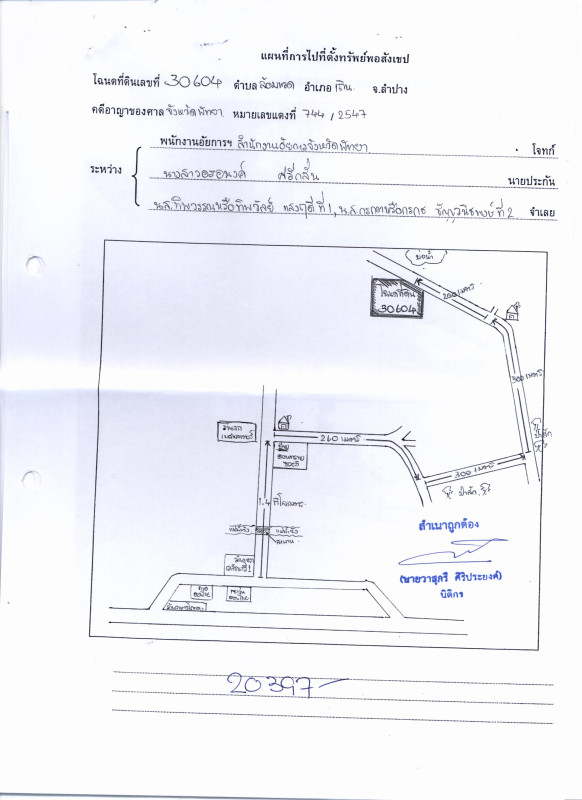 แผนที่การไปที่ตั้งทรัพย์พอสังเขป
โฉนดที่ดินเลขที่ 30604 ตำบล ล้อมแรด อำเภอ เถิน จ.ลำปาง
คดีอาญาของศาล จังหวัดพัทยา หมายเลขแดงที่ 744 / 2547
พนักงานอัยการฯ สำนักงานอัยการจังหวัดพัทยา โจทก์
ระหว่าง
นางสาวอรอนงค์ ศรีกลิ่น นายประกัน
น.ส.ทิพวรรณหรือทิพวัลย์ ที่ 1, น.ส. ที่ 2 จำเลย
บ่อน้ำ
โฉนดที่ดิน
30604
200 เมตร
300 เมตร
ป่าสัก
260 เมตร
300 เมตร
ป่าสัก
1.4 กิโลเมตร
สะพาน
สำเนาถูกต้อง
(นายวาสุกรี ศิริประยงค์)
นิติกร
20397